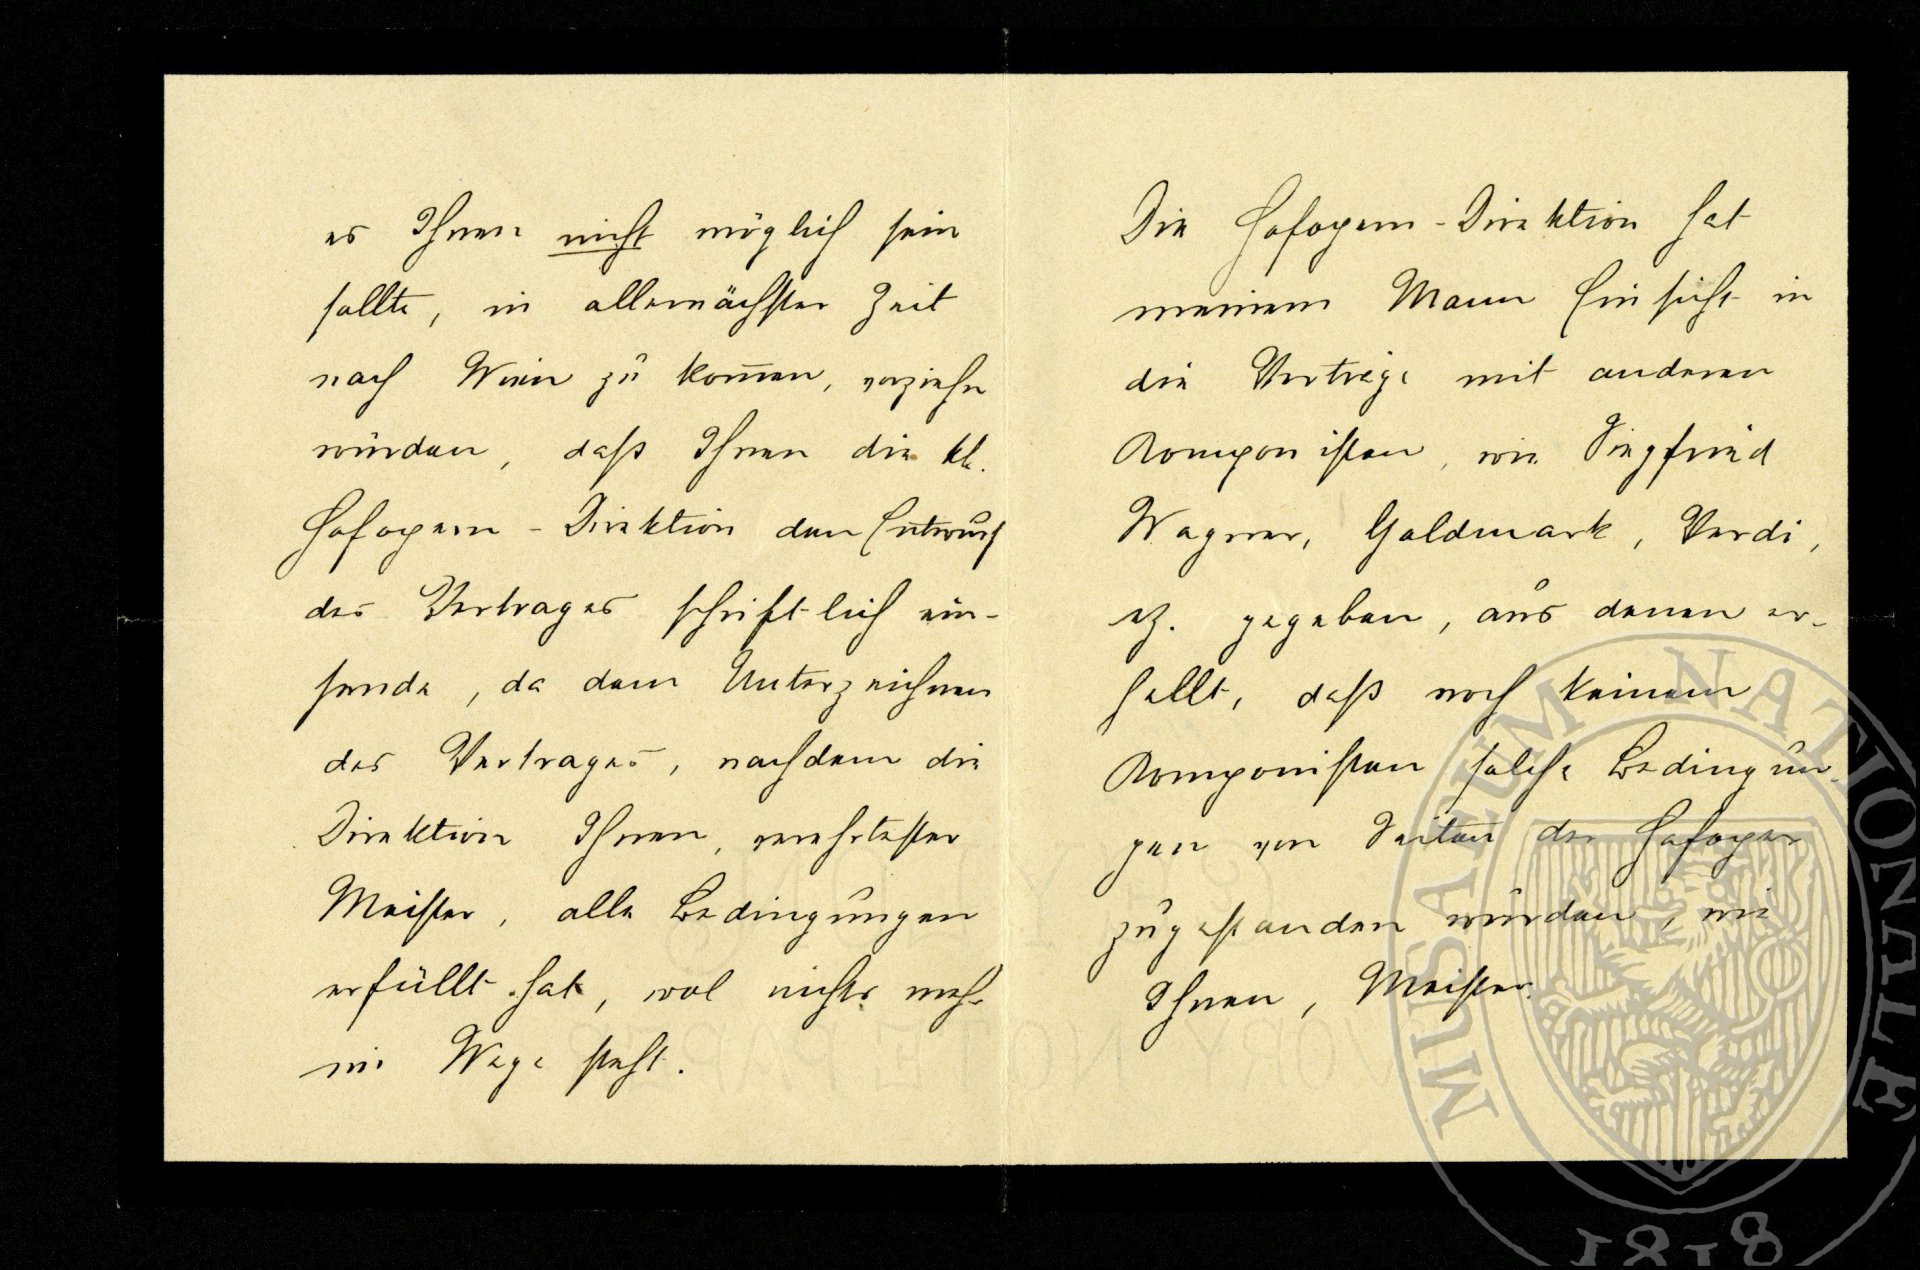 es Ihnen nicht möglich sein
sollte, in allernächster Zeit
nach Wien zu kom̄en, vorziehn
würden, daß Ihnen die kk.
Hofopern-Direktion den Entwurf
des Vertrages schriftlich ein-
sende, da dem Unterzeichnen
des Vertrages, nachdem die
Direktion Ihnen, verehrtester
Meister, alle Bedingungen
erfüllt hat, wol nichts mehr
im Wege steht.
Die Hofopern-Direktion hat
meinem Mann Einsicht in
die Verträge mit anderen
Komponisten, wie Siegfried
Wagner, Goldmark, Verdi,
etz. gegeben, aus denen er-
hellt, daß noch keinem
Komponisten solche Bedingun-
gen von Seiten der Hofoper
zugestanden wurden, wie
Ihnen, Meister.
MUSAEUM NATIONALE
1818